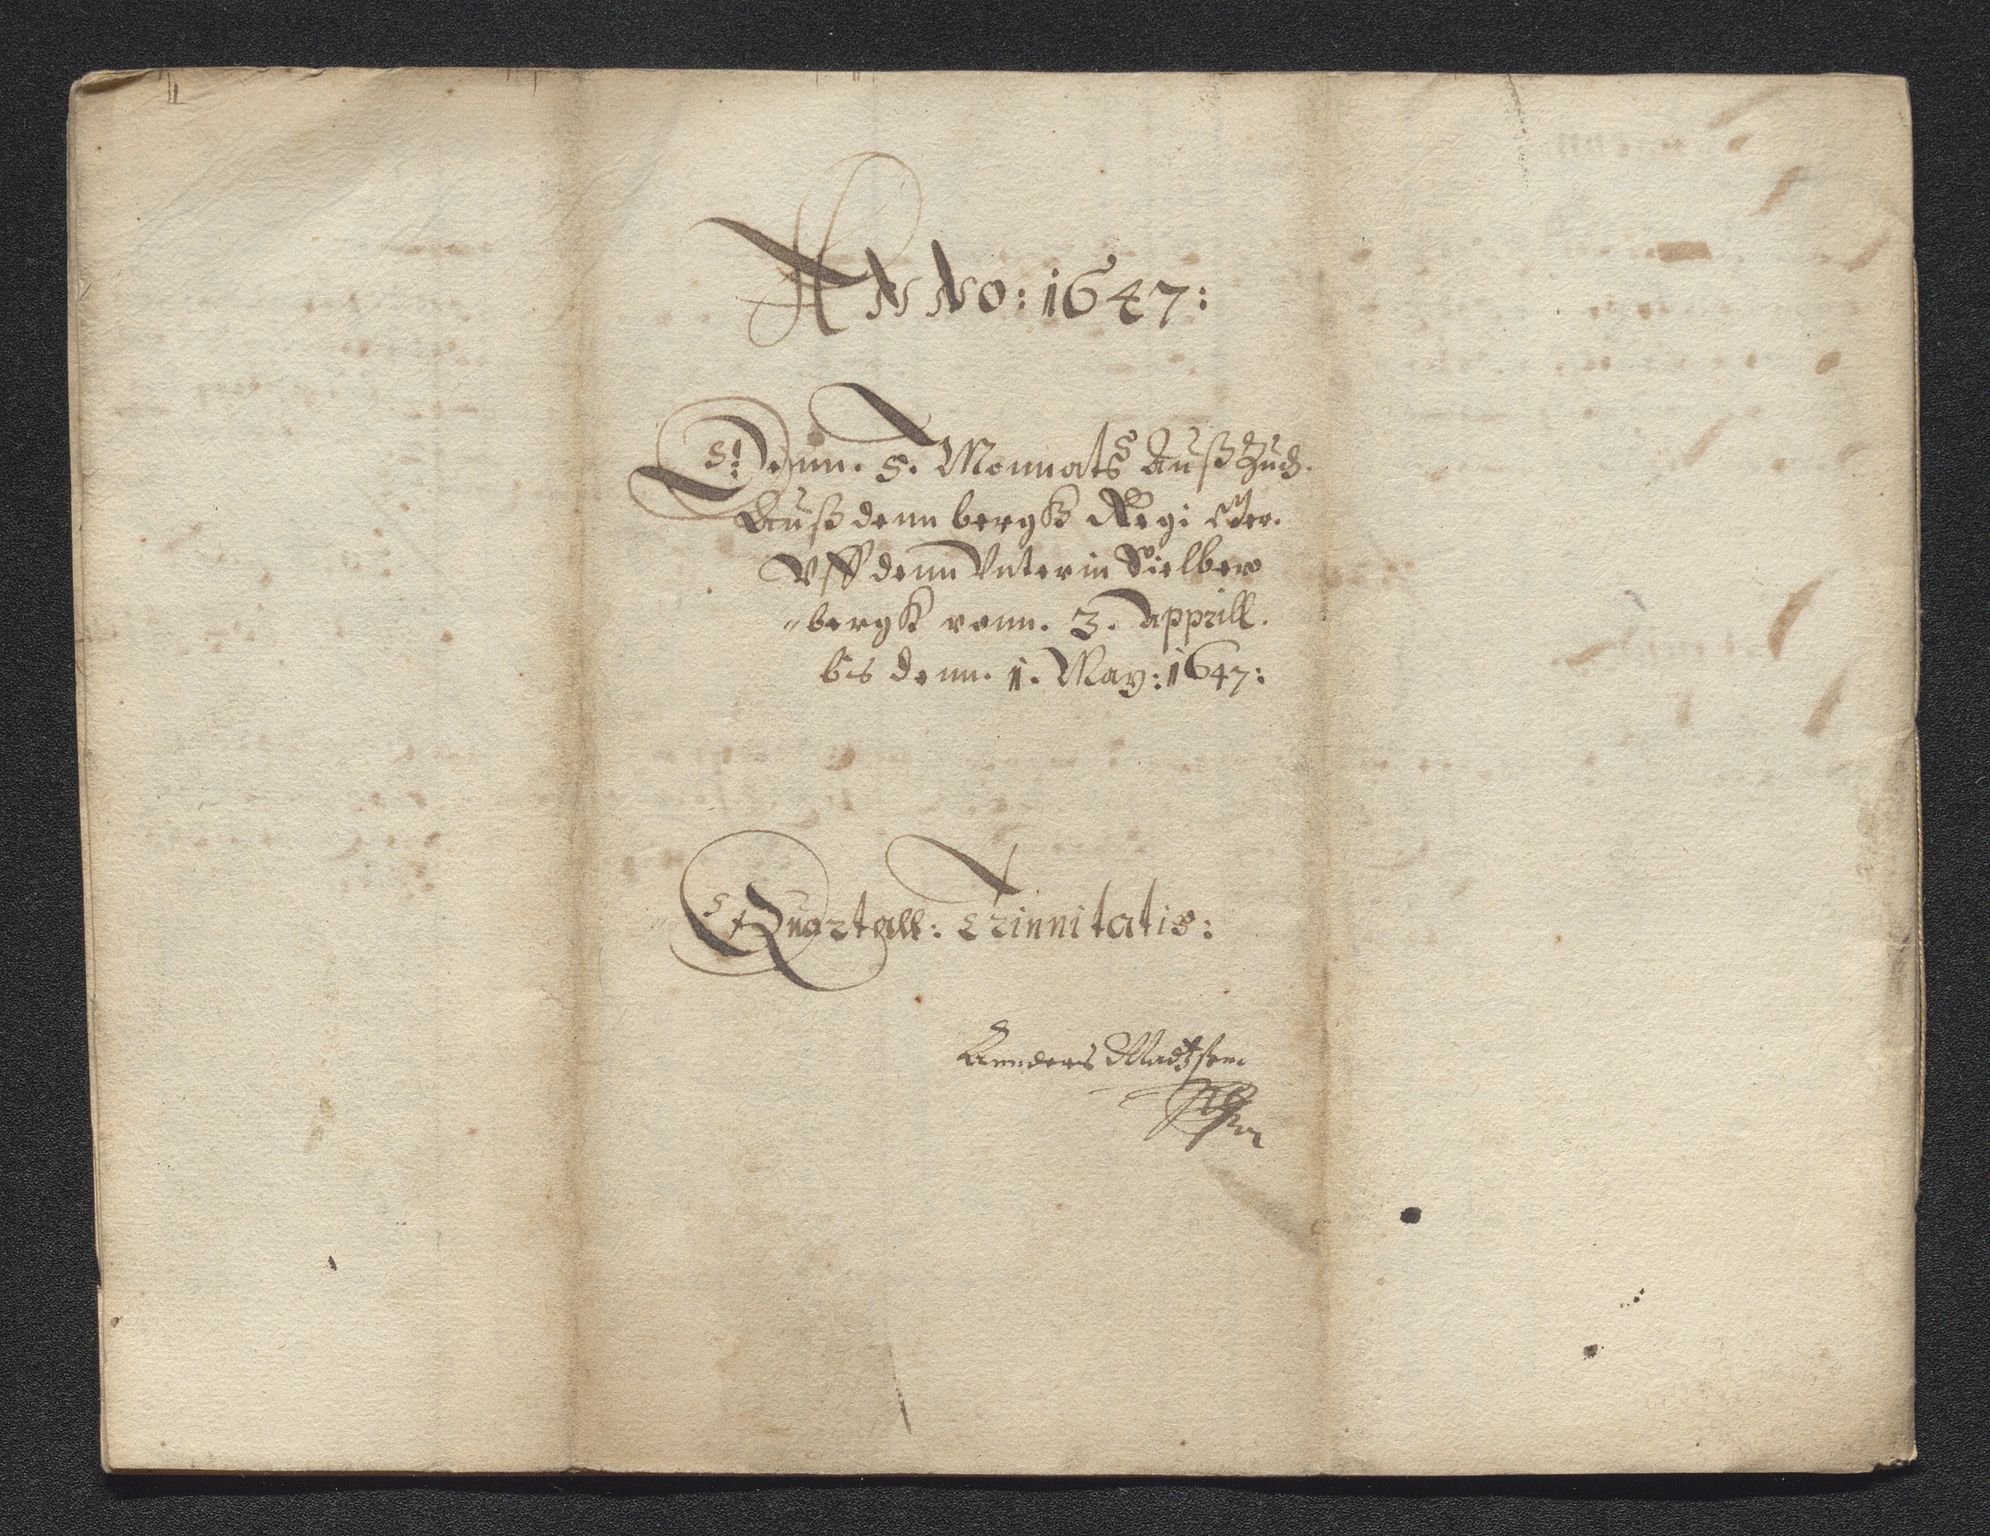 ANNo: 1647:
Denn. 5. Monnats Außzuch.
Auß denn bergk Regi ster.
Vff denn Vnterin Sielber
"bergk vonn. 3. Apprill.
bis denn. 1. May: 1647:
Quartall: Trinnitatis:
Annders Madtzsen